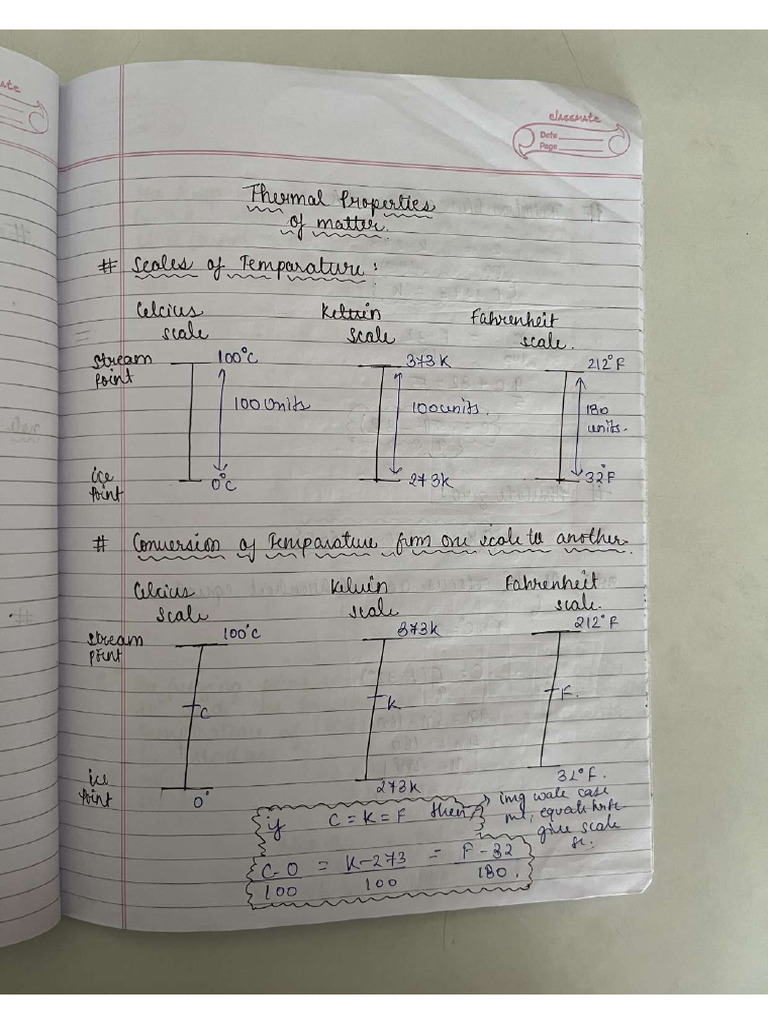 classmate
Date
Page
Thermal Properties
of matter.
# Scales of Temparature:
Celcius scale
Keluin scale
Fahrenheit scale.
stream point
100°C
373K
212°F
100 Units
100units.
180 units.
ice point
0°C
273K
32°F
# Conversion of Temparature from one scale to another.
Celcius scale
Keluin scale
Fahrenheit scale.
stream point
100°C
373K
212°F
C
K
F.
ice point
0°
273K
32°F.
if C = K = F then
img wale case
me, equate krke
give scale
se.
C-0/100 = K-273/100 = F-32/180.